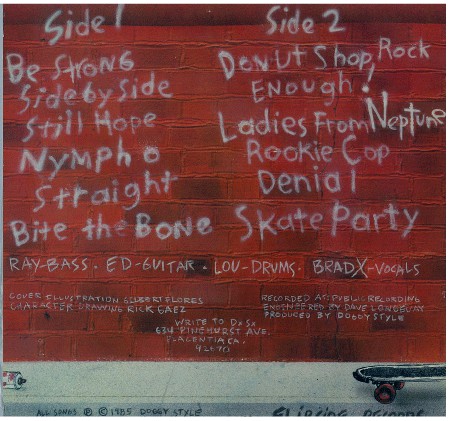 Side 1
Be Strong
Side by Side
Still Hope
Nympho
Straight
Bite the Bone
Side 2
Donut Shop Rock
Enough!
Ladies From Neptune
Rookie Cop
Denial
Skate Party
RAY-BASS. ED-GUITAR. LOU-DRUMS. BRADX-VOCALS
COVER ILLUSTRATION GILBERT FLORES
CHARACTER DRAWING RICK GAEZ
RECORDED AT: PUBLIC RECORDING
ENGINEERED BY DAVE
PRODUCED BY DOGGY STYLE
WRITE TO
634 PINEHURST AVE.
PLACENTIA CA.
92670
ALL SONGS Ⓟ © 1985 DOGGY STYLE